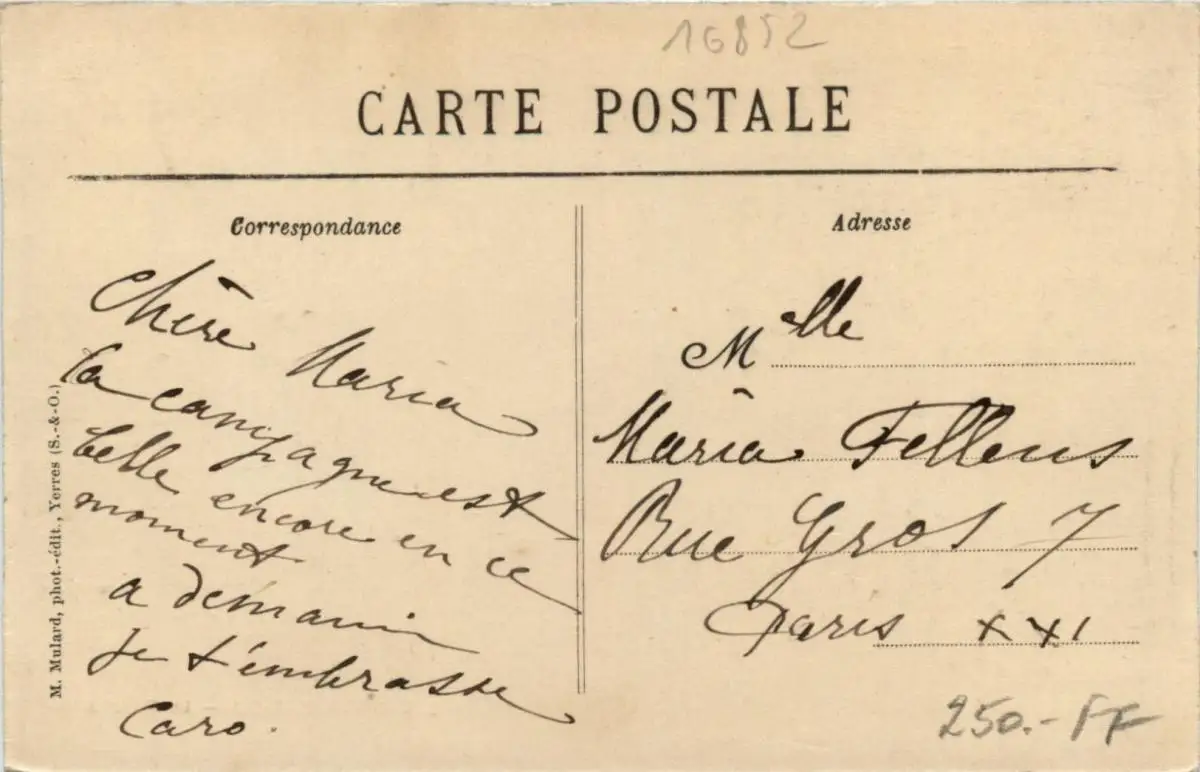 16852
CARTE POSTALE
Correspondance
Chère Maria
la campagne est
belle encore en ce
moment
a demain
je t'embrasse
Caro.
M. Mulard, phot.-édit., Yerres (S.-&-O.)
Adresse
Melle
Maria Fellens
Rue Gros 7
Paris XXI
250.- FF